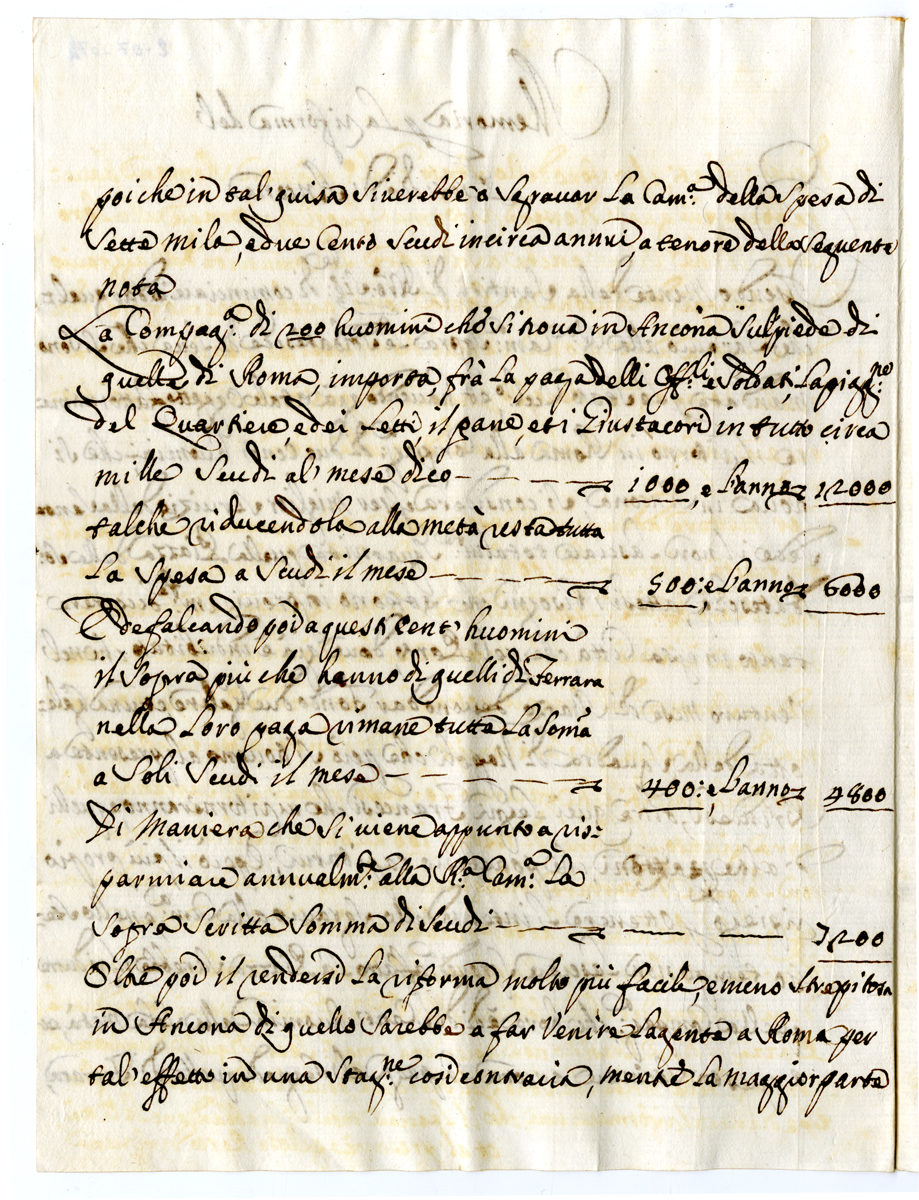 poiche in tal' guisa si verebbe a sgravar la Cam.ª della spesa di
sette mila, e due Cento scudi in circa annui, a tenore della seguente
nota
La Compag.ª di 200 huomini che si trova in Ancona sul piede di
quella di Roma, importa, frà la paga delli Off.li e soldati, la pig.ne
del Quartiere, e dei Letti, il pane, et i Giustacori in tutto circa
mille scudi al' mese dico 1000, e l'anno 12000
talche riducendola alla metà resta tutta
la spesa a scudi il mese 500: e l'anno 6000
E defalcando poi a questi cent' huomini
il sopra più che hanno di quelli di Ferrara
nella loro paga rimane tutta la somª
a soli scudi il mese 400: e l'anno 4800
Di maniera che si viene appunto a ris=
parmiare annualm.te alla R.ª Cam.ª la
sopra scritta somma di scudi 7200
Oltre poi il rendersi la riforma molto più facile, e meno strepitosa
in Ancona di quello sarebbe a far venire la gente a Roma per
tal' effetto in una stag.ne così contraria, mentre la maggior parte